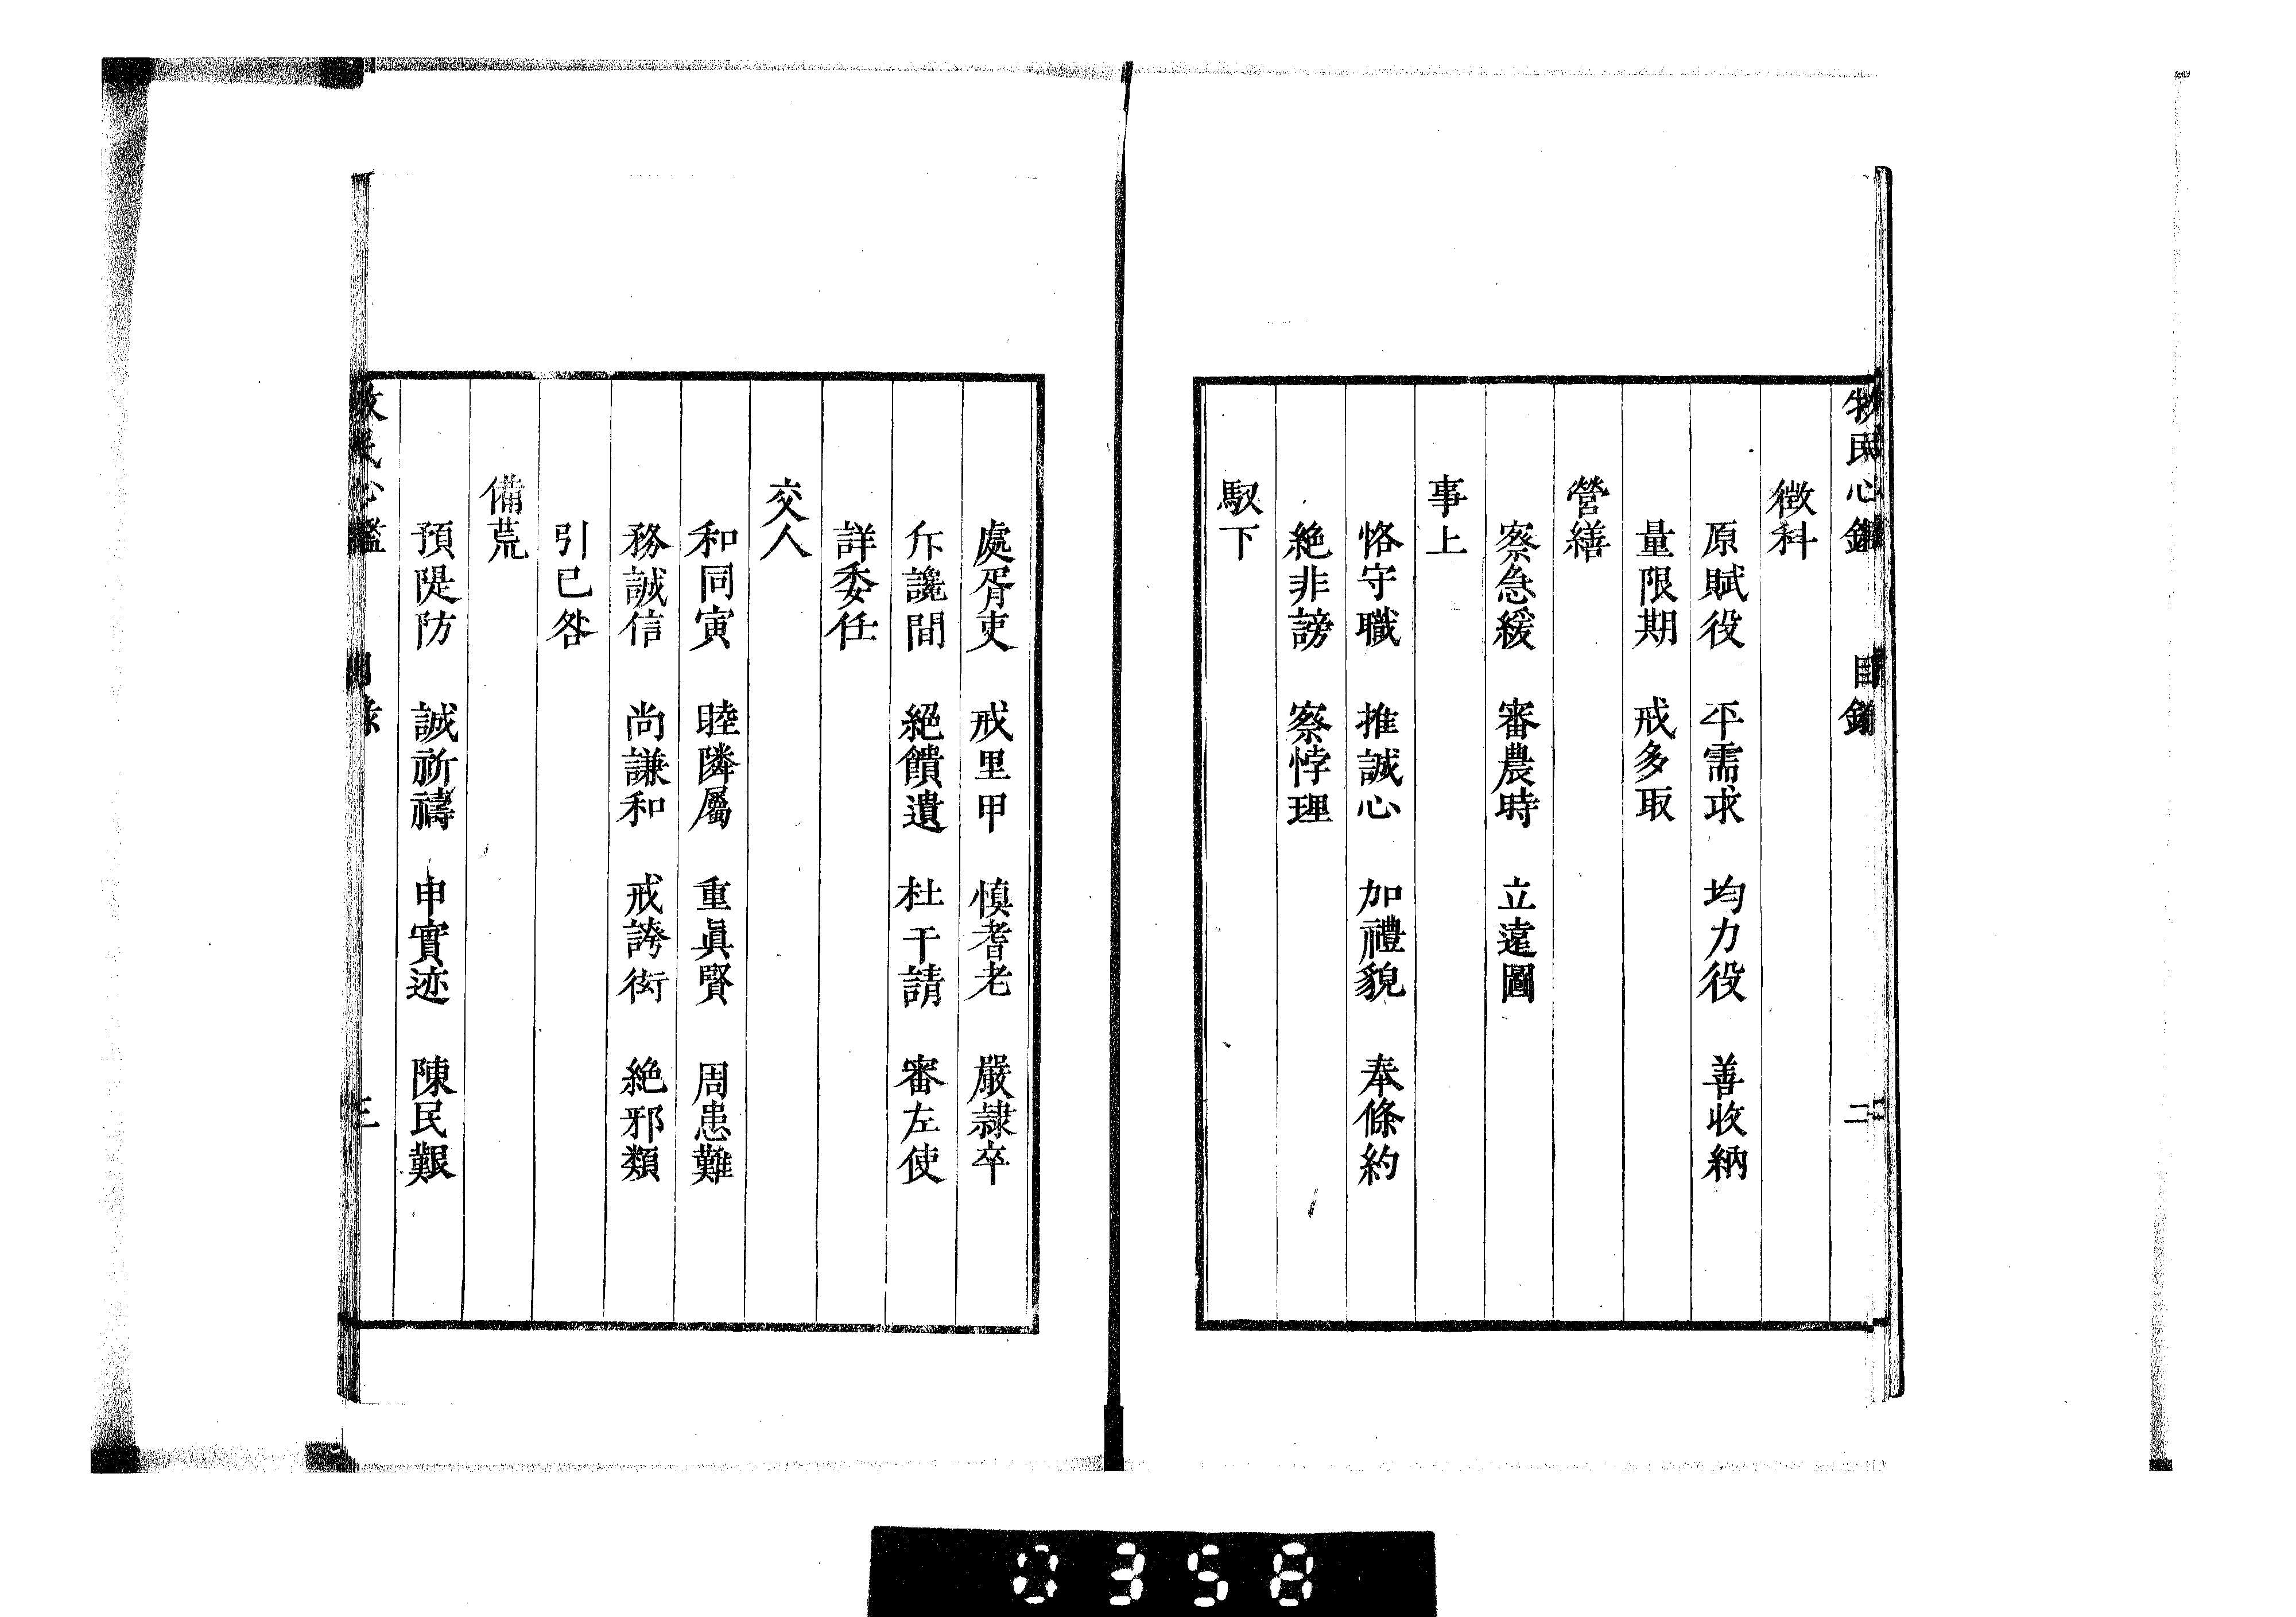 牧民心鑑　目錄　二
徵科
原賦役　平需求　均力役　善收納
量限期　戒多取
營繕
察急緩　審農時　立遠圖
事上
恪守職　推誠心　加禮貌　奉條約
絶非謗　察悖理
馭下
處胥吏　戒里甲　慎耆老　嚴隷卒
斥讒間　絕饋遺　杜干請　審左使
詳委任
交人
和同寅　睦隣屬　重眞賢　周患難
務誠信　尚謙和　戒誇衒　絶邪類
引已咎
備荒
預隄防　誠祈禱　申實迹　陳民艱
牧民心鑑　目錄　三
0358